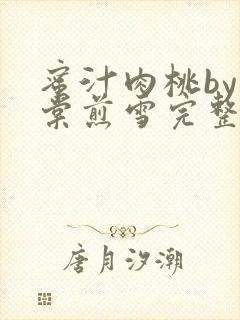 蜜汁肉桃by
棠煎雪完整
唐月汐潮